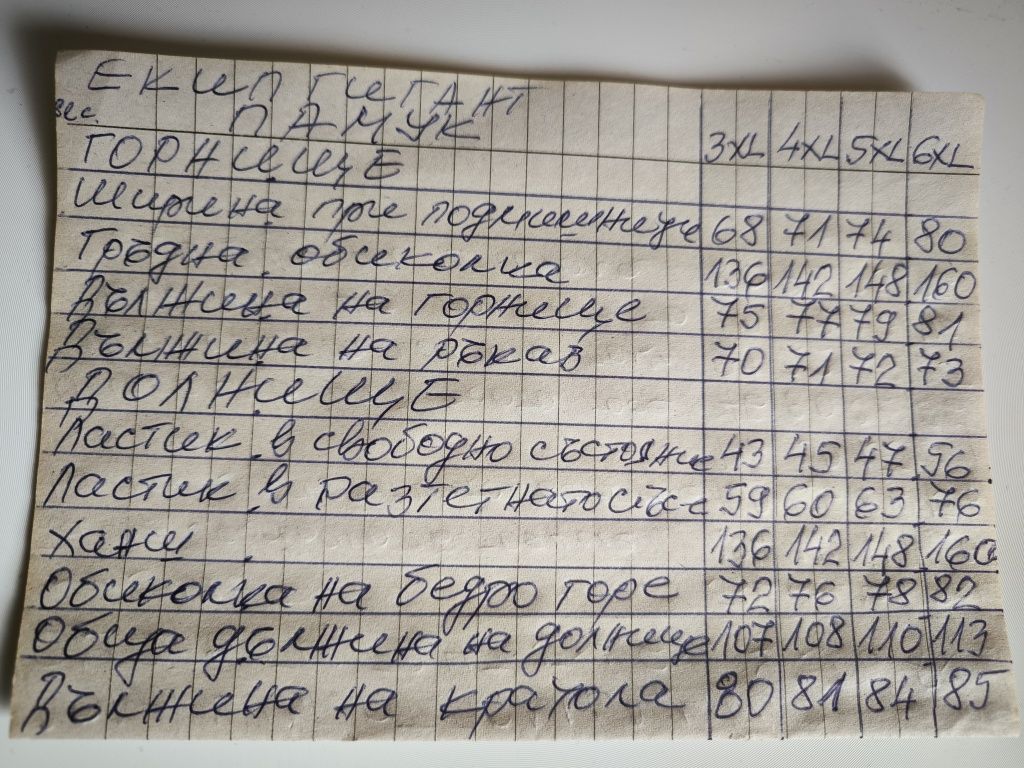 ЕКИП ГИГАНТ
ПАМУК
ГОРНИЩЕ 3XL 4XL 5XL 6XL
Ширина при подмишниците 68 71 74 80
Гръдна обиколка 136 142 148 160
Дължина на горнище 75 77 79 81
Дължина на ръкав 70 71 72 73
ДОЛНИЩЕ
Ластик в свободно състояние 43 45 47 56
Ластик в разтегнато със-е 59 60 63 76
Ханш 136 142 148 160
Обиколка на бедро горе 72 76 78 82
Обща дължина на долнище 107 108 110 113
Дължина на крачола 80 81 84 85